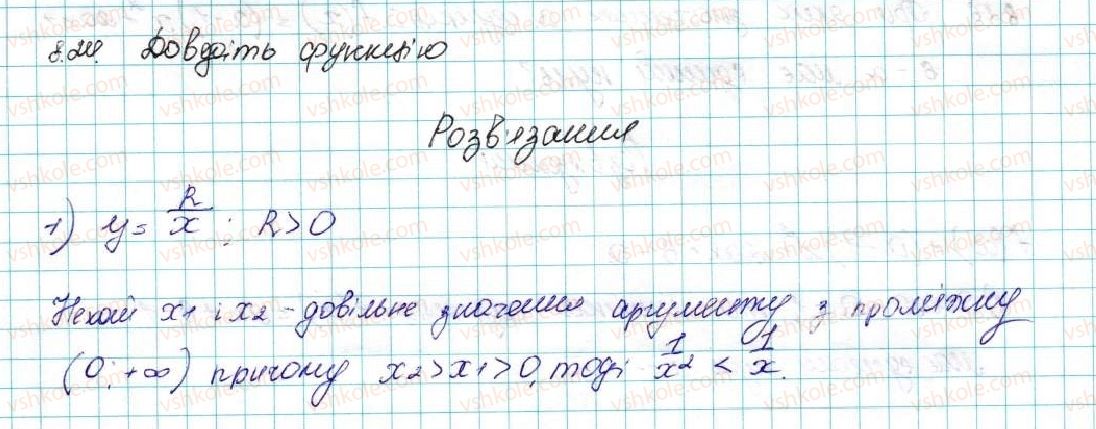 8.28. Доведіть функцію
Розв'язання
1) y = k/x ; k > 0
Нехай x1 і x2 - довільне значення аргументу з проміжку
(0; +∞) причому x2 > x1 > 0, тоді 1/x2 < 1/x.